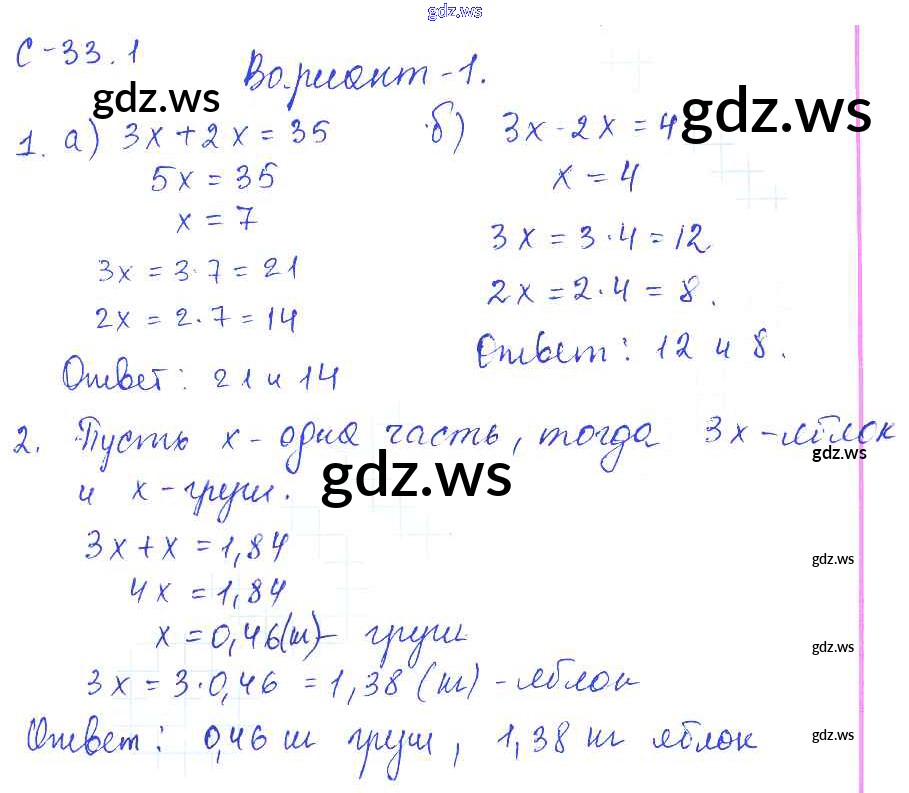 gdz.ws
С-33.1
Вариант-1.
gdz.ws
gdz.ws
1. а) 3x + 2x = 35
5x = 35
x = 7
3x = 3·7 = 21
2x = 2·7 = 14
Ответ: 21 и 14
б) 3x - 2x = 4
x = 4
3x = 3·4 = 12
2x = 2·4 = 8.
Ответ: 12 и 8.
2. Пусть x - одна часть, тогда 3x - яблок
gdz.ws
и x - груш.
gdz.ws
3x + x = 1,84
gdz.ws
4x = 1,84
x = 0,46 (т) - груш
gdz.ws
3x = 3·0,46 = 1,38 (т) - яблок
Ответ: 0,46 т груш, 1,38 т яблок
gdz.ws